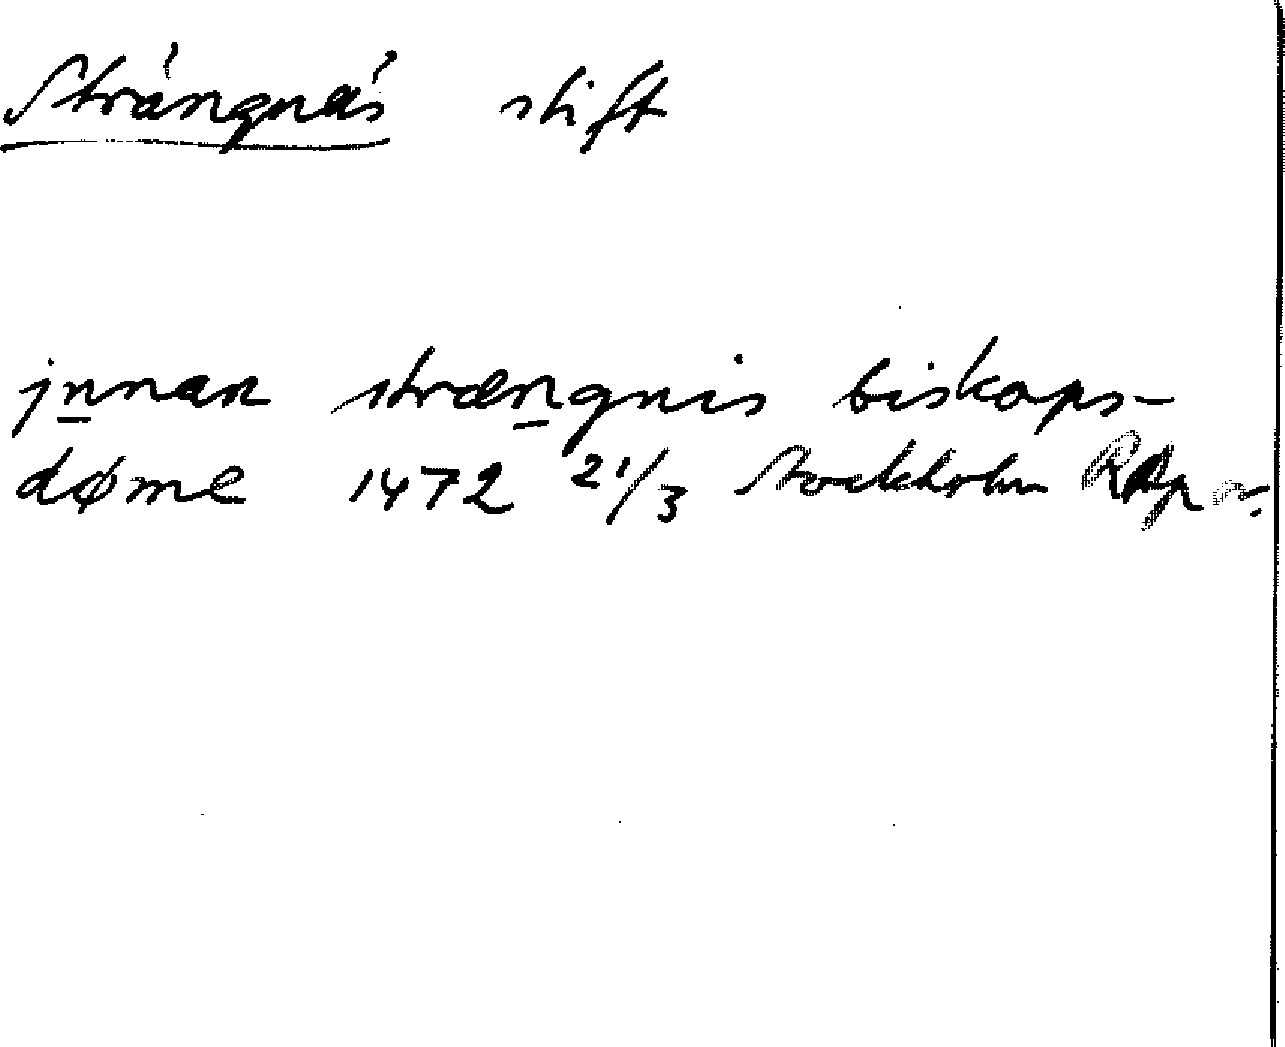 Strängnäs stift
jnnan strængnis biskops-
døme 1472 21/3 Stockholm RAp or.